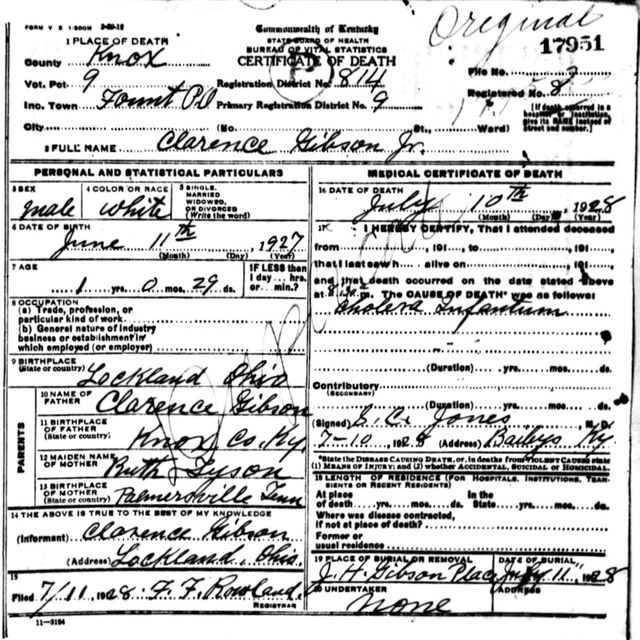 FORM V S 1-500M 2-29-18
Original
Commonwealth of Kentucky
STATE BOARD OF HEALTH
BUREAU OF VITAL STATISTICS
CERTIFICATE OF DEATH
17951
1 PLACE OF DEATH
County Knox
Vot. Pct. 9
Registration District No. 814
File No.
Registered No. 8
Inc. Town Fount P.O
Primary Registration District No. 9
[If death occurred in a hospital or institution, give its NAME instead of street and number.]
City (No. St., Ward)
2 FULL NAME Clarence Gibson Jr.
PERSONAL AND STATISTICAL PARTICULARS
3 SEX male
4 COLOR OR RACE white
5 SINGLE, MARRIED WIDOWED, OR DIVORCED (Write the word)
6 DATE OF BIRTH
June 11th, 1927
(Month) (Day) (Year)
7 AGE
1 yrs. 0 mos. 29 ds.
IF LESS than 1 day... hrs. or... min.?
8 OCCUPATION
(a) Trade, profession, or particular kind of work
(b) General nature of industry business or establishment in which employed (or employer)
9 BIRTHPLACE (State or country) Lockland Ohio
PARENTS
10 NAME OF FATHER Clarence Gibson
11 BIRTHPLACE OF FATHER (State or country) Knox Co. Ky.
12 MAIDEN NAME OF MOTHER Ruth Tyson
13 BIRTHPLACE OF MOTHER (State or country) Palmersville Tenn
14 THE ABOVE IS TRUE TO THE BEST OF MY KNOWLEDGE
(Informant) Clarence Gibson
(Address) Lockland, Ohio.
15
Filed 7/11 1928 F. F. Rowland
REGISTRAR
11-3184
MEDICAL CERTIFICATE OF DEATH
16 DATE OF DEATH
July 10th, 1928
(Month) (Day) (Year)
17 I HEREBY CERTIFY, That I attended deceased
from , 191 , to , 191
that I last saw h alive on , 191
and that death occurred on the date stated above
at 8:30 m. The CAUSE OF DEATH* was as follows:
Cholera Infantum
(Duration) yrs. mos. ds.
Contributory
(SECONDARY)
(Duration) yrs. mos. ds.
(Signed) S. C. Jones M. D.
7-10, 1928 (Address) Baileys Ky
*State the DISEASE CAUSING DEATH, or, in deaths from VIOLENT CAUSES state (1) MEANS OF INJURY; and (2) whether ACCIDENTAL, SUICIDAL or HOMICIDAL.
18 LENGTH OF RESIDENCE (FOR HOSPITALS, INSTITUTIONS, TRANSIENTS OR RECENT RESIDENTS)
At place of death yrs. mos. ds. In the State yrs. mos. ds.
Where was disease contracted, if not at place of death?
Former or usual residence
19 PLACE OF BURIAL OR REMOVAL
J. H. Gibson Place
DATE OF BURIAL
July 11, 1928
20 UNDERTAKER
None
ADDRESS